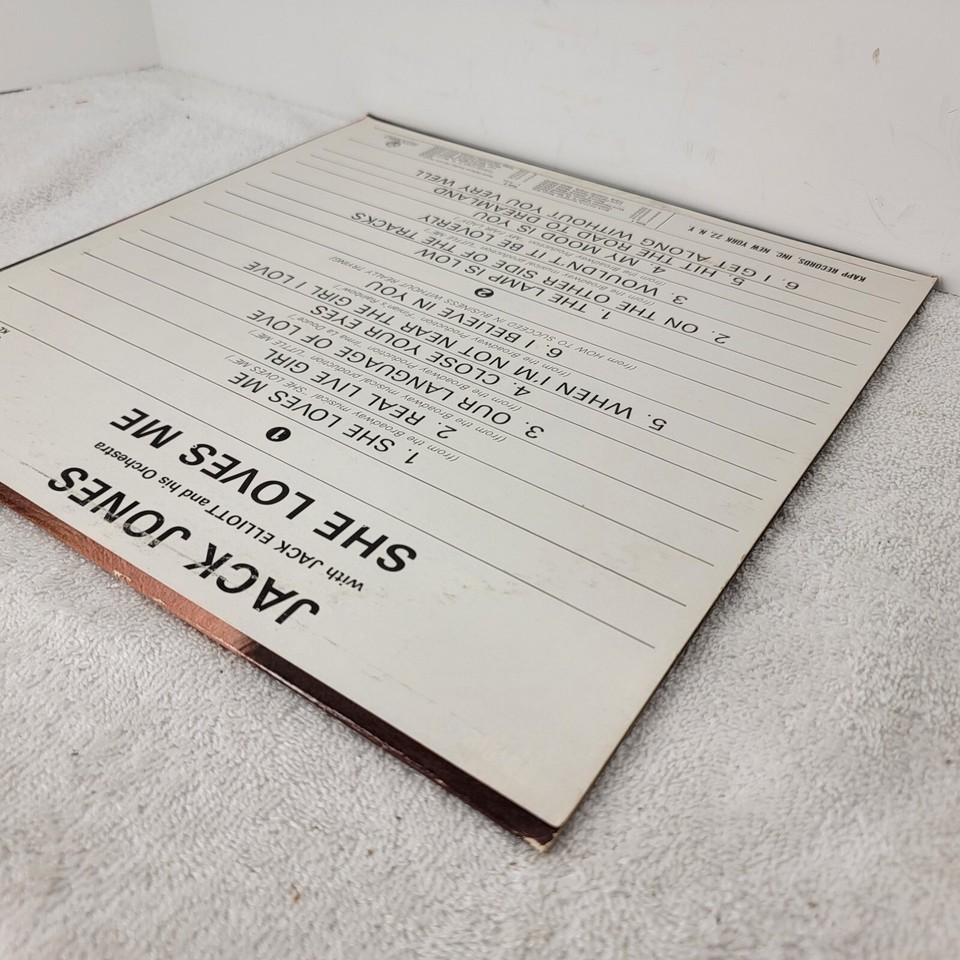 JACK JONES
with JACK ELLIOTT and his Orchestra
SHE LOVES ME
SHE LOVES ME
1
1. SHE LOVES ME
(from the Broadway musical "SHE LOVES ME")
2. REAL LIVE GIRL
(from the Broadway musical production "LITTLE ME")
3. OUR LANGUAGE OF LOVE
(from the Broadway Production "Irma La Douce")
4. CLOSE YOUR EYES
5. WHEN I'M NOT NEAR THE GIRL I LOVE
(from the Broadway Production "Finian's Rainbow")
6. I BELIEVE IN YOU
(from HOW TO SUCCEED IN BUSINESS WITHOUT REALLY TRYING)
2
1. THE LAMP IS LOW
2. ON THE OTHER SIDE OF THE TRACKS
3. WOULDN'T IT BE LOVERLY
4. MY MOOD IS YOU
5. HIT THE ROAD TO DREAMLAND
6. I GET ALONG WITHOUT YOU VERY WELL
KAPP RECORDS, INC. NEW YORK 22, N.Y.